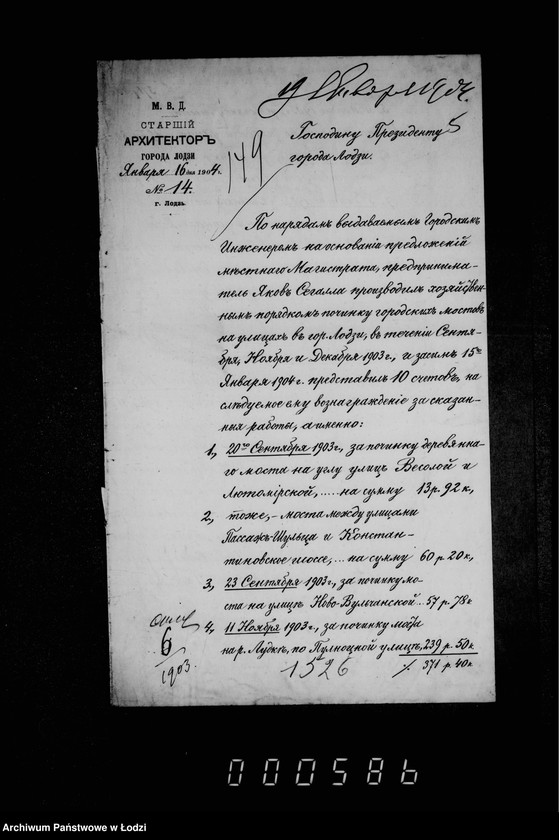 19 Января 1904.
М. В. Д.
СТАРШІЙ
АРХИТЕКТОРЪ
ГОРОДА ЛОДЗИ
Января 16 дня 1904 г.
№ 14.
г. Лодзь.
149
Господину Президенту
города Лодзи.
5
По нарядамъ выдаваемымъ Городскимъ
Инженеромъ на основаніи предложеній
мѣстнаго Магистрата, предпринима-
тель Яковъ Сегалла производилъ хозяйствен-
нымъ порядкомъ починку городскихъ мостовъ
на улицахъ въ гор. Лодзи, въ теченіи Сентя-
бря, Ноября и Декабря 1903 г., и засимъ 15го
Января 1904 г. представилъ 10 счетовъ, на
слѣдуемое ему вознагражденіе за сказан-
ныя работы, а именно:
1, 20го Сентября 1903 г., за починку деревянна-
го моста на углу улицъ Веселой и
Лютомірской, ..... на сумму 13 р. 92 к,
2, тоже, - моста между улицами
Пассажъ-Шульца и Констан-
тиновское шоссе, ... на сумму 60 р 20 к,
3, 23 Сентября 1903 г., за починку мо-
ста на улицѣ Ново-Вульчанской .. 57 р. 78 к
4, 11 Ноября 1903 г., за починку моста
на р. Лудкѣ, по Пулноцной улицѣ, 239 р. 50 к
371 р. 40 к
6
1903.
1526
000586
Archiwum Państwowe w Łodzi